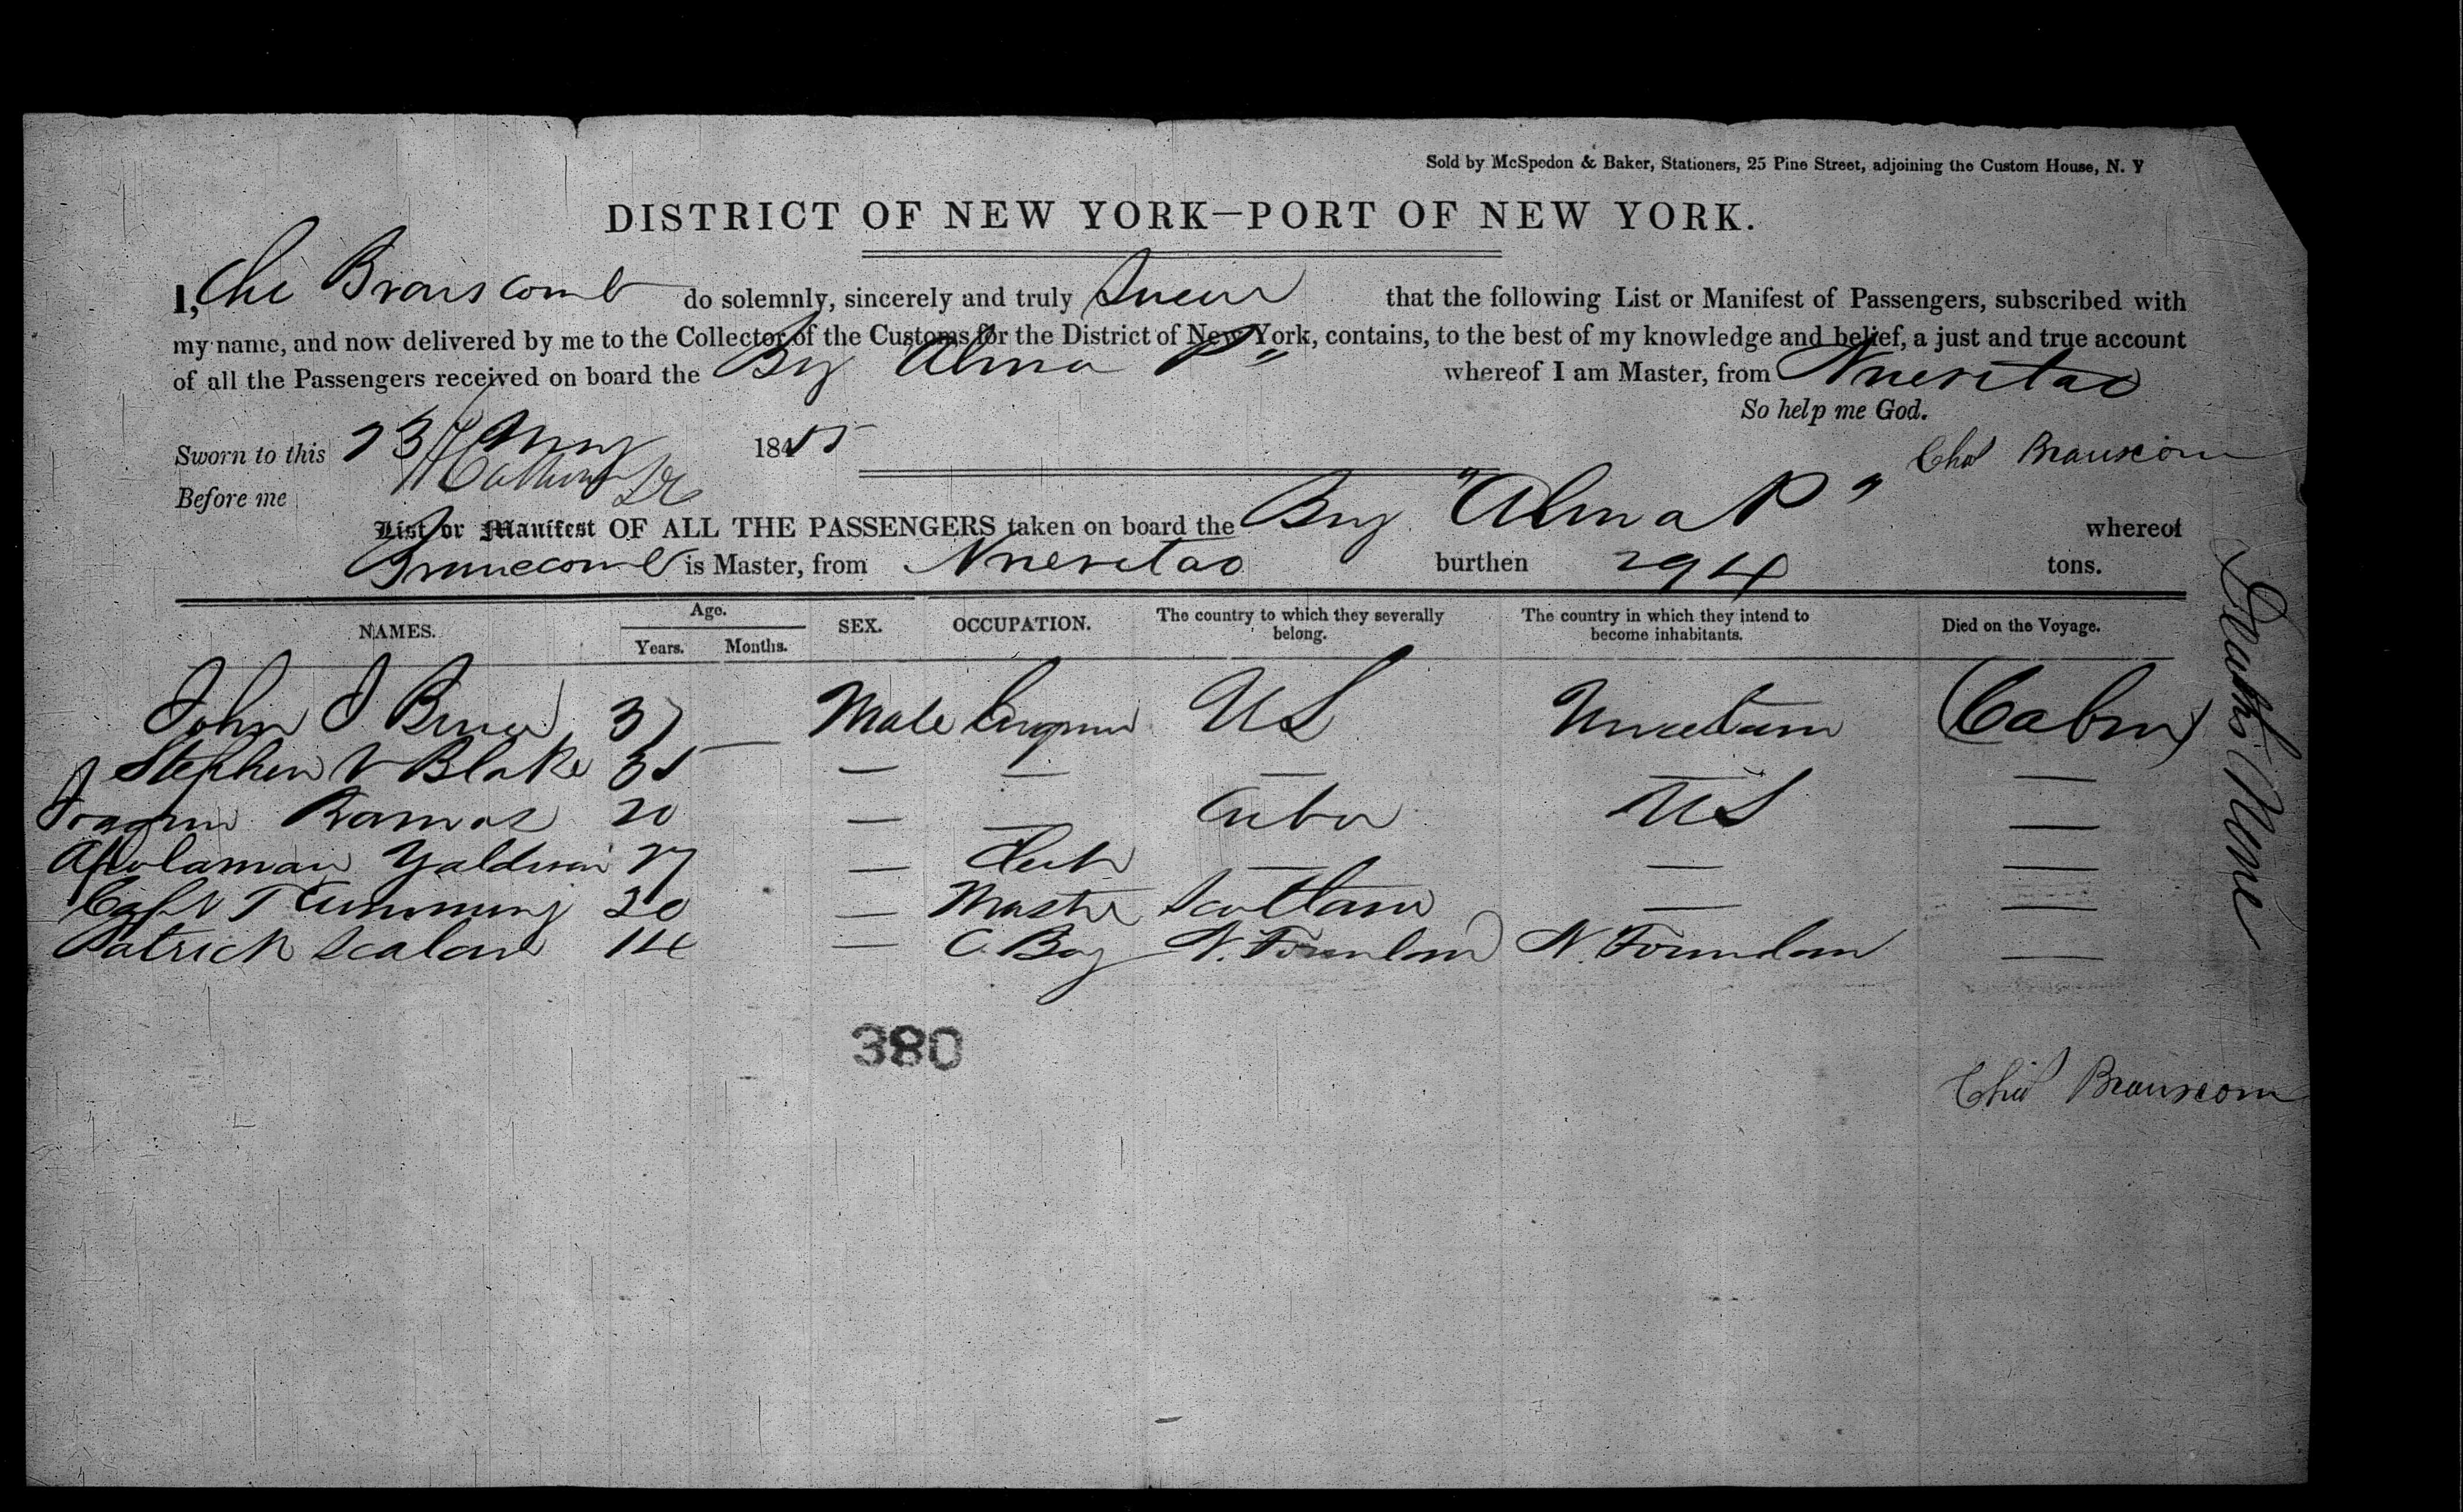 Sold by McSpedon & Baker, Stationers, 25 Pine Street, adjoining the Custom House, N. Y
DISTRICT OF NEW YORK—PORT OF NEW YORK.
I, Chs Branscomb do solemnly, sincerely and truly Swear that the following List or Manifest of Passengers, subscribed with
my name, and now delivered by me to the Collector of the Customs for the District of New York, contains, to the best of my knowledge and belief, a just and true account
of all the Passengers received on board the Bg Alma P" whereof I am Master, from Nuevitas
So help me God.
Sworn to this 23 May 1855 Chas Branscom
Before me
List or Manifest OF ALL THE PASSENGERS taken on board the Brig "Alma P" whereof
Branscomb is Master, from Nuevitas burthen 294 tons.
NAMES. Age. Years. Months. SEX. OCCUPATION. The country to which they severally belong. The country in which they intend to become inhabitants. Died on the Voyage.
John J 37 — Male US Uncertain (Cabin)
Stephen V Blake 35 — — — — —
Ramos 20 — — Cuba US —
27 — Clerk — — —
Capt T Cumming 30 — Master Scotland — —
Patrick Scalan 14 — C. Boy N. Founlan N. Foundlan —
Deaths None
380
Chas Branscom